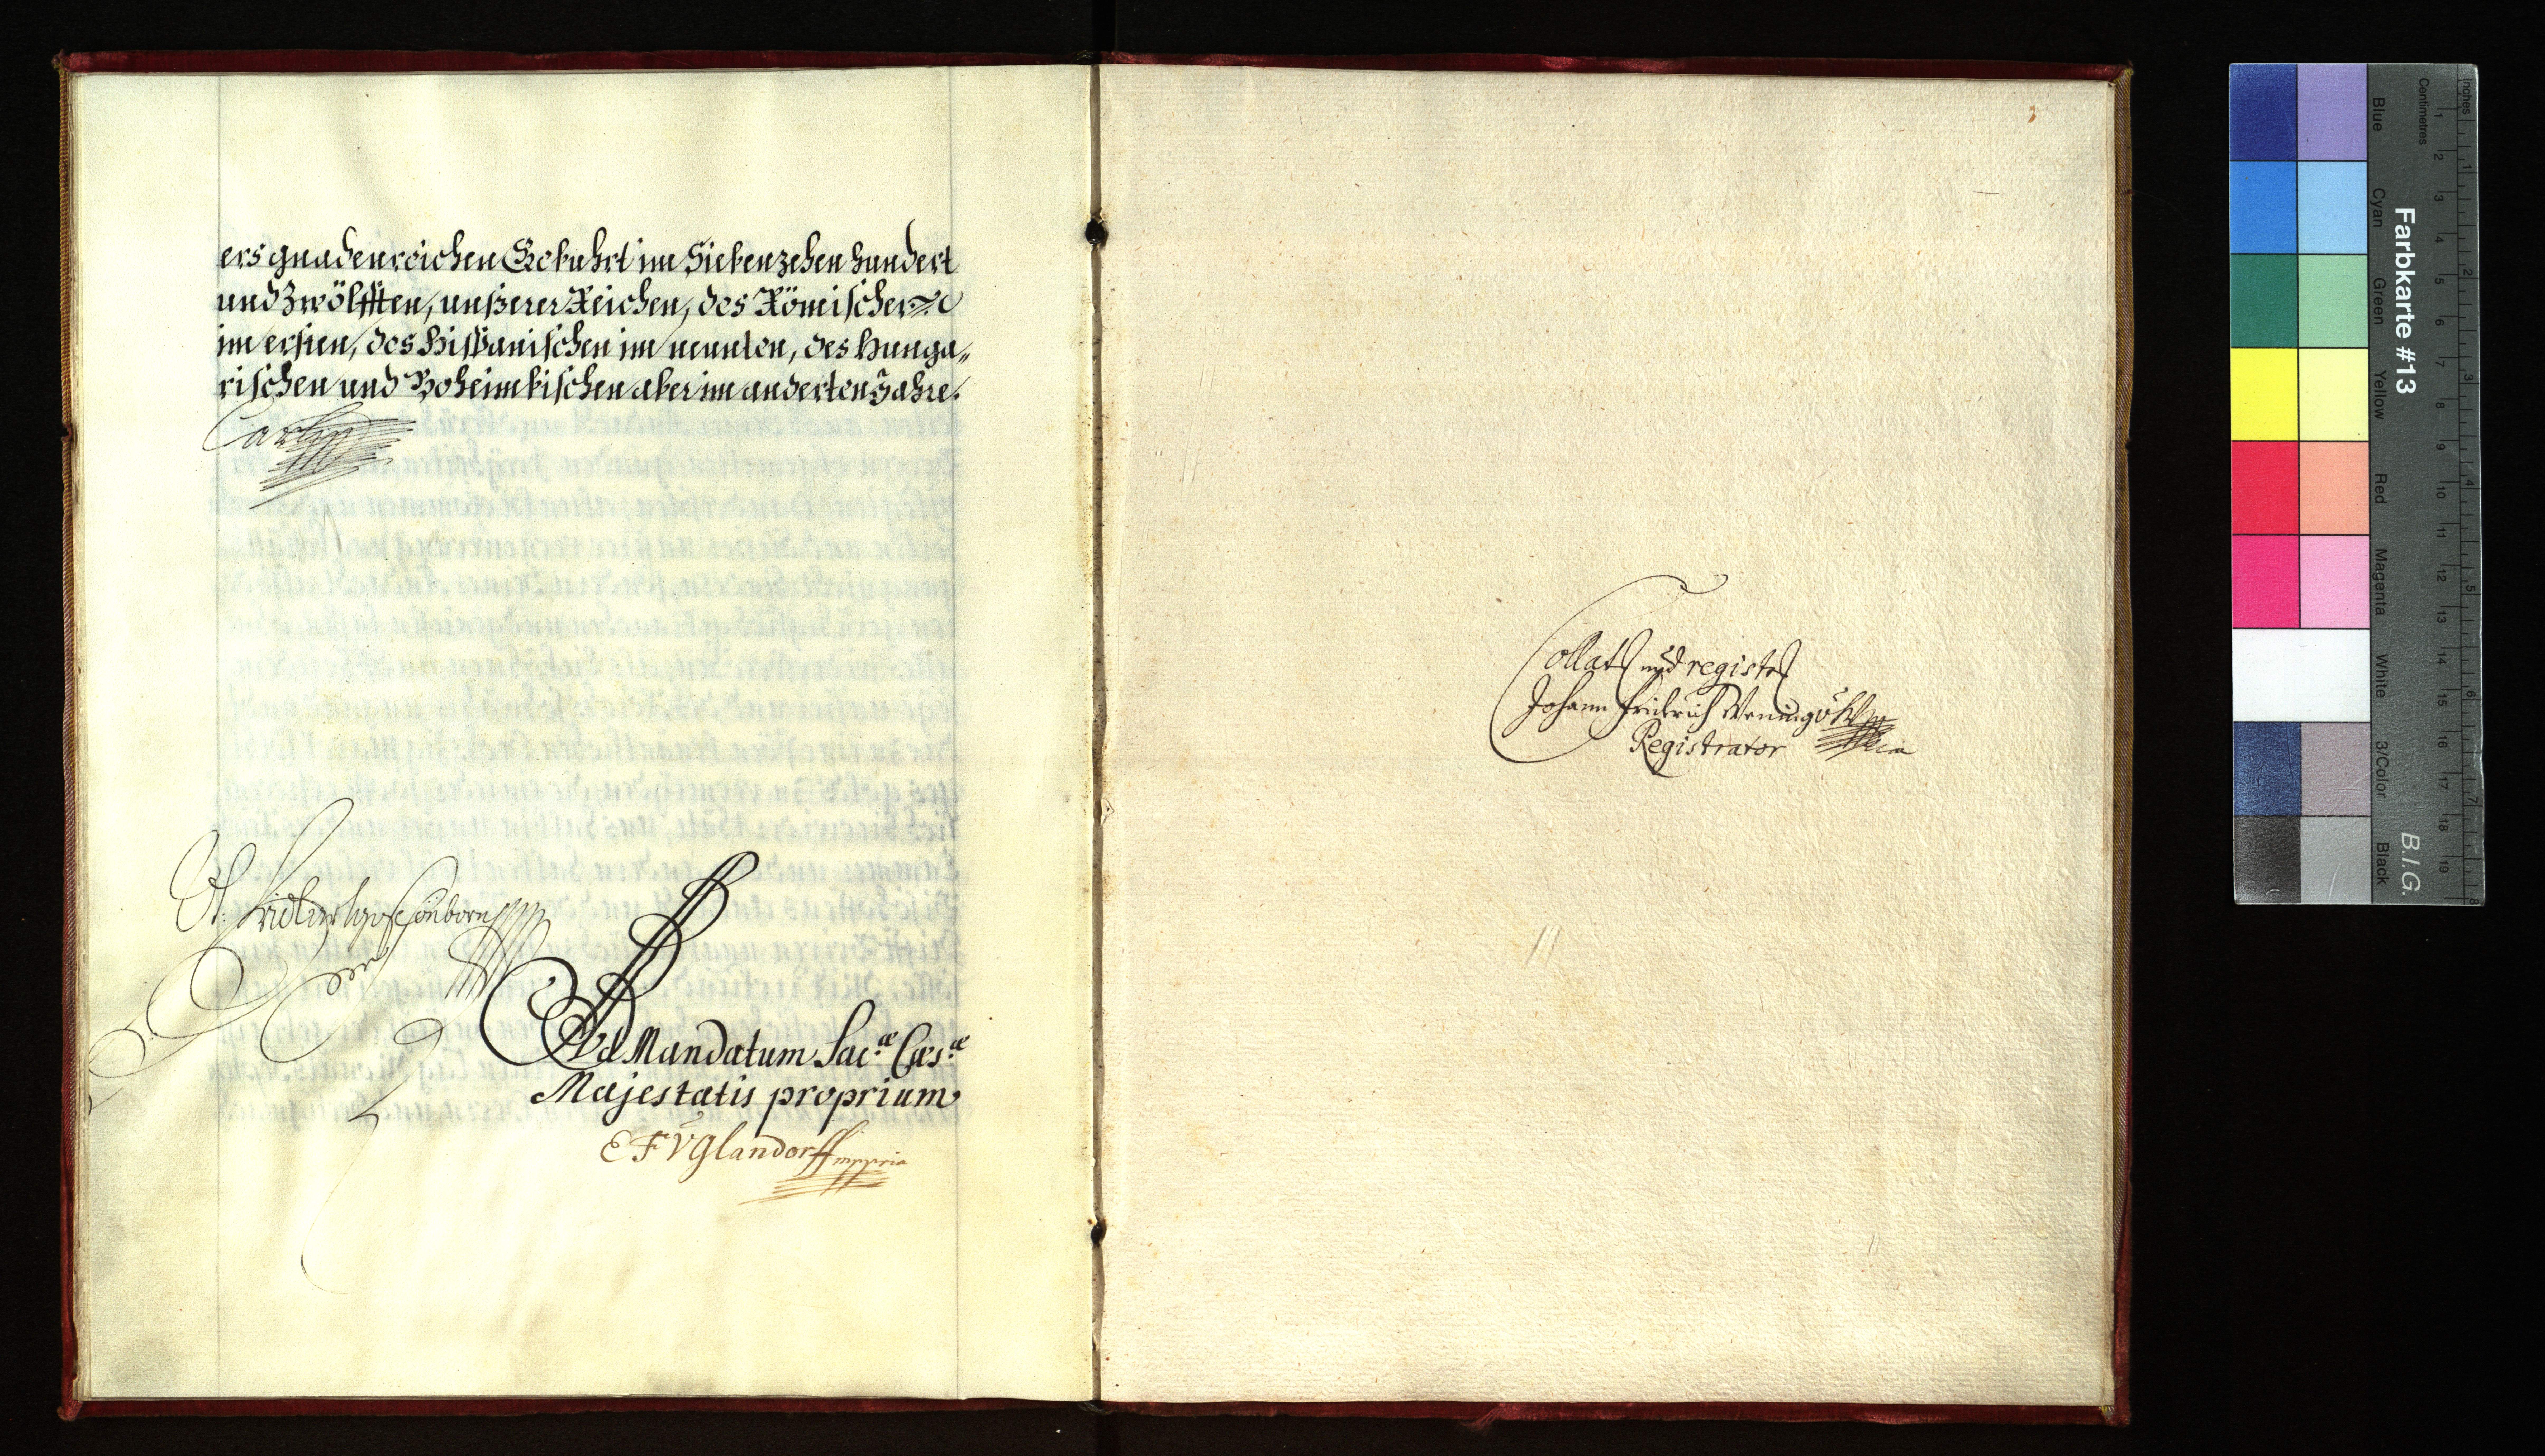 ers gnadenreichen Gebuhrt im Siebenzehen hundert
und Zwölfften, unßerer Reichen, des Römischen
im ersten, des Hispanischen im neunten, des Hunga„
rischen und Boheimbischen aber im anderten Jahre.
Carl
Vt. Fridrich Schönborn
Ad Mandatum Sac.æ Cæs.æ
Majestatis proprium
E F V Glandorff mppria
Collat und regist
Johann Fridrich
Registrator
3
Farbkarte #13
B.I.G.
Inches
Centimetres
1 2 3 4 5 6 7 8
1 2 3 4 5 6 7 8 9 10 11 12 13 14 15 16 17 18 19
Blue
Cyan
Green
Yellow
Red
Magenta
White
3/Color
Black